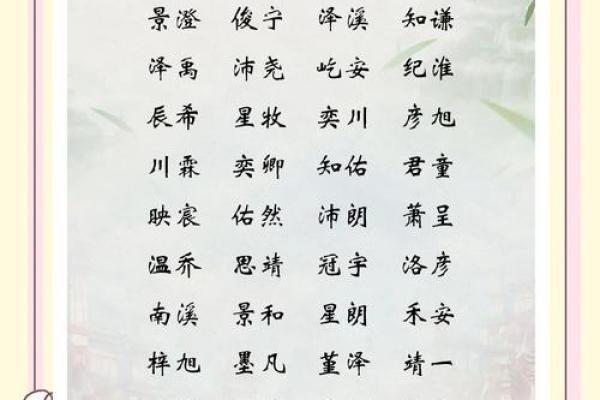 景澄 俊宁 泽溪 知谦
泽禹 沛尧 屹安 纪淮
辰希 星牧 奕川 彦旭
川霖 奕卿 知佑 君童
映宸 佑然 沛朗 萧呈
温乔 思靖 冠宇 洛彦
南溪 景和 星朗 禾安
梓旭 墨凡 堇泽 靖一